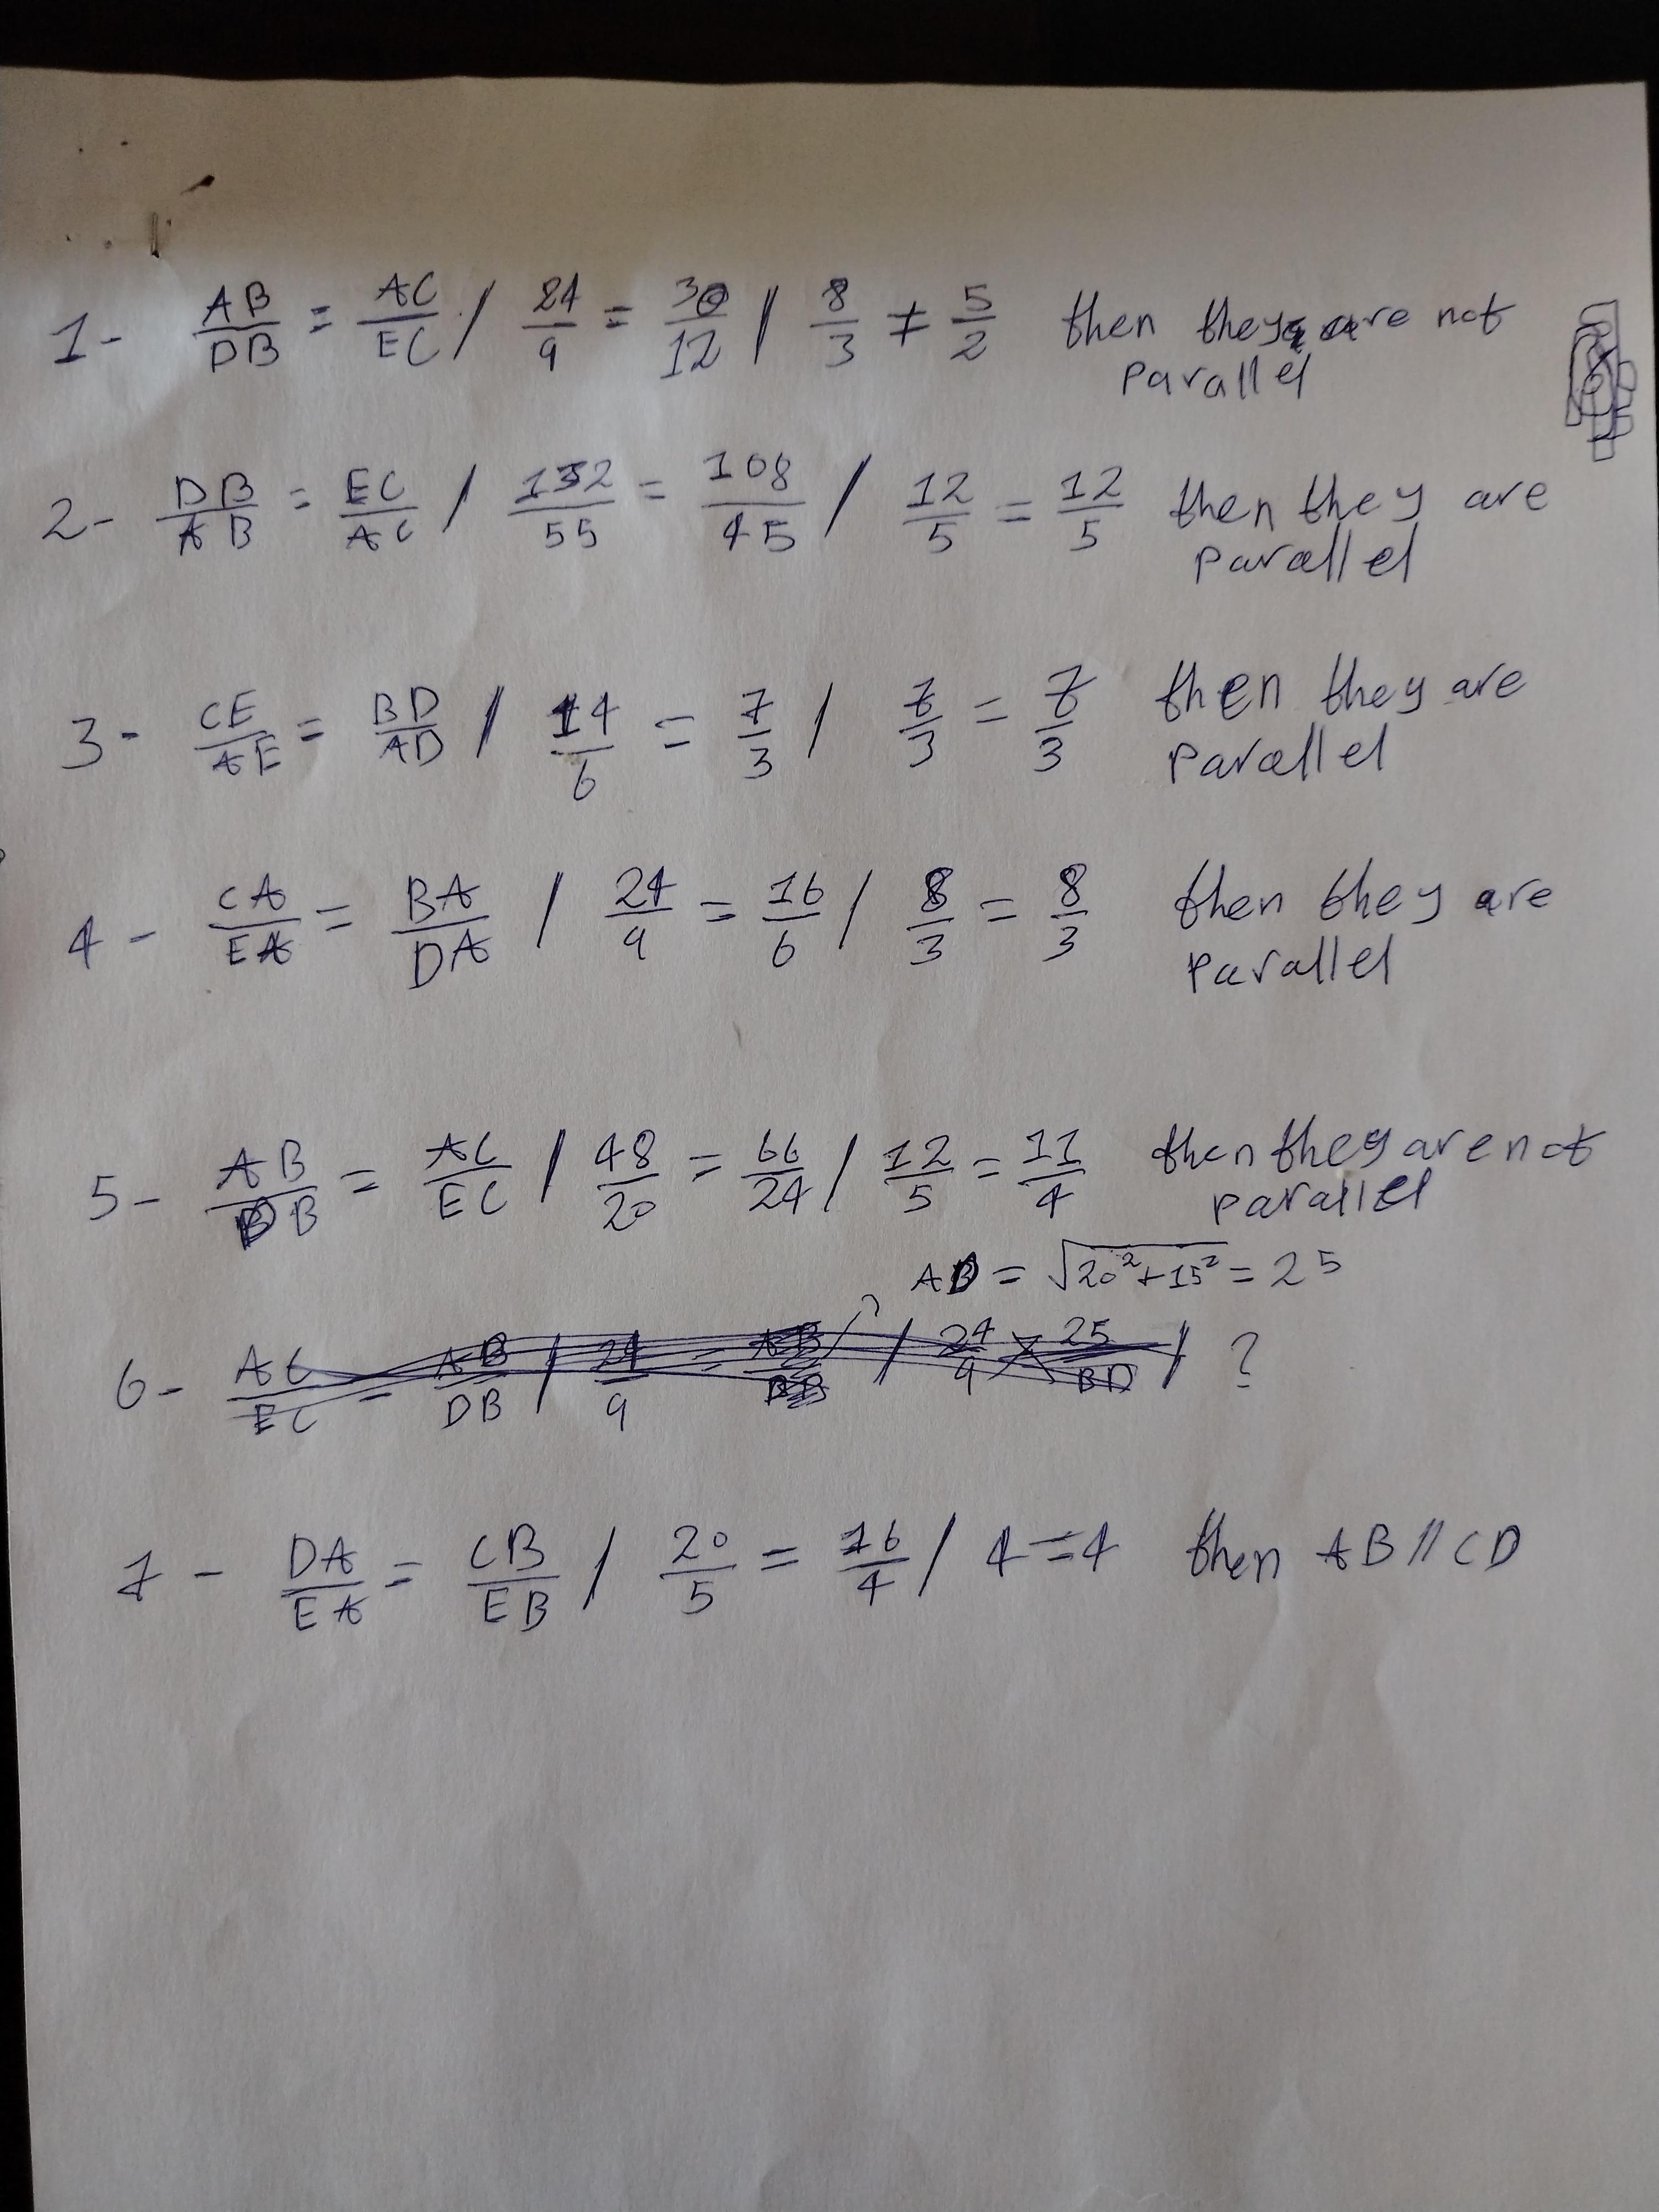 1- AB/DB = AC/EC / 24/9 = 30/12 / 8/3 ≠ 5/2 then they are not
parallel
2- DB/AB = EC/AC / 132/55 = 108/45 / 12/5 = 12/5 then they are
parallel
3- CE/AE = BD/AD / 14/6 = 7/3 / 7/3 = 7/3 then they are
parallel
4- CA/EA = BA/DA / 24/9 = 16/6 / 8/3 = 8/3 then they are
parallel
5- AB/DB = AC/EC / 48/20 = 66/24 / 12/5 = 11/4 then they are not
parallel
AD = √20²+15² = 25
6- AC/EC = AB/DB / 24/9 = / 24/9 × 25/BD / ?
7- DA/EA = CB/EB / 20/5 = 16/4 / 4=4 then AB//CD